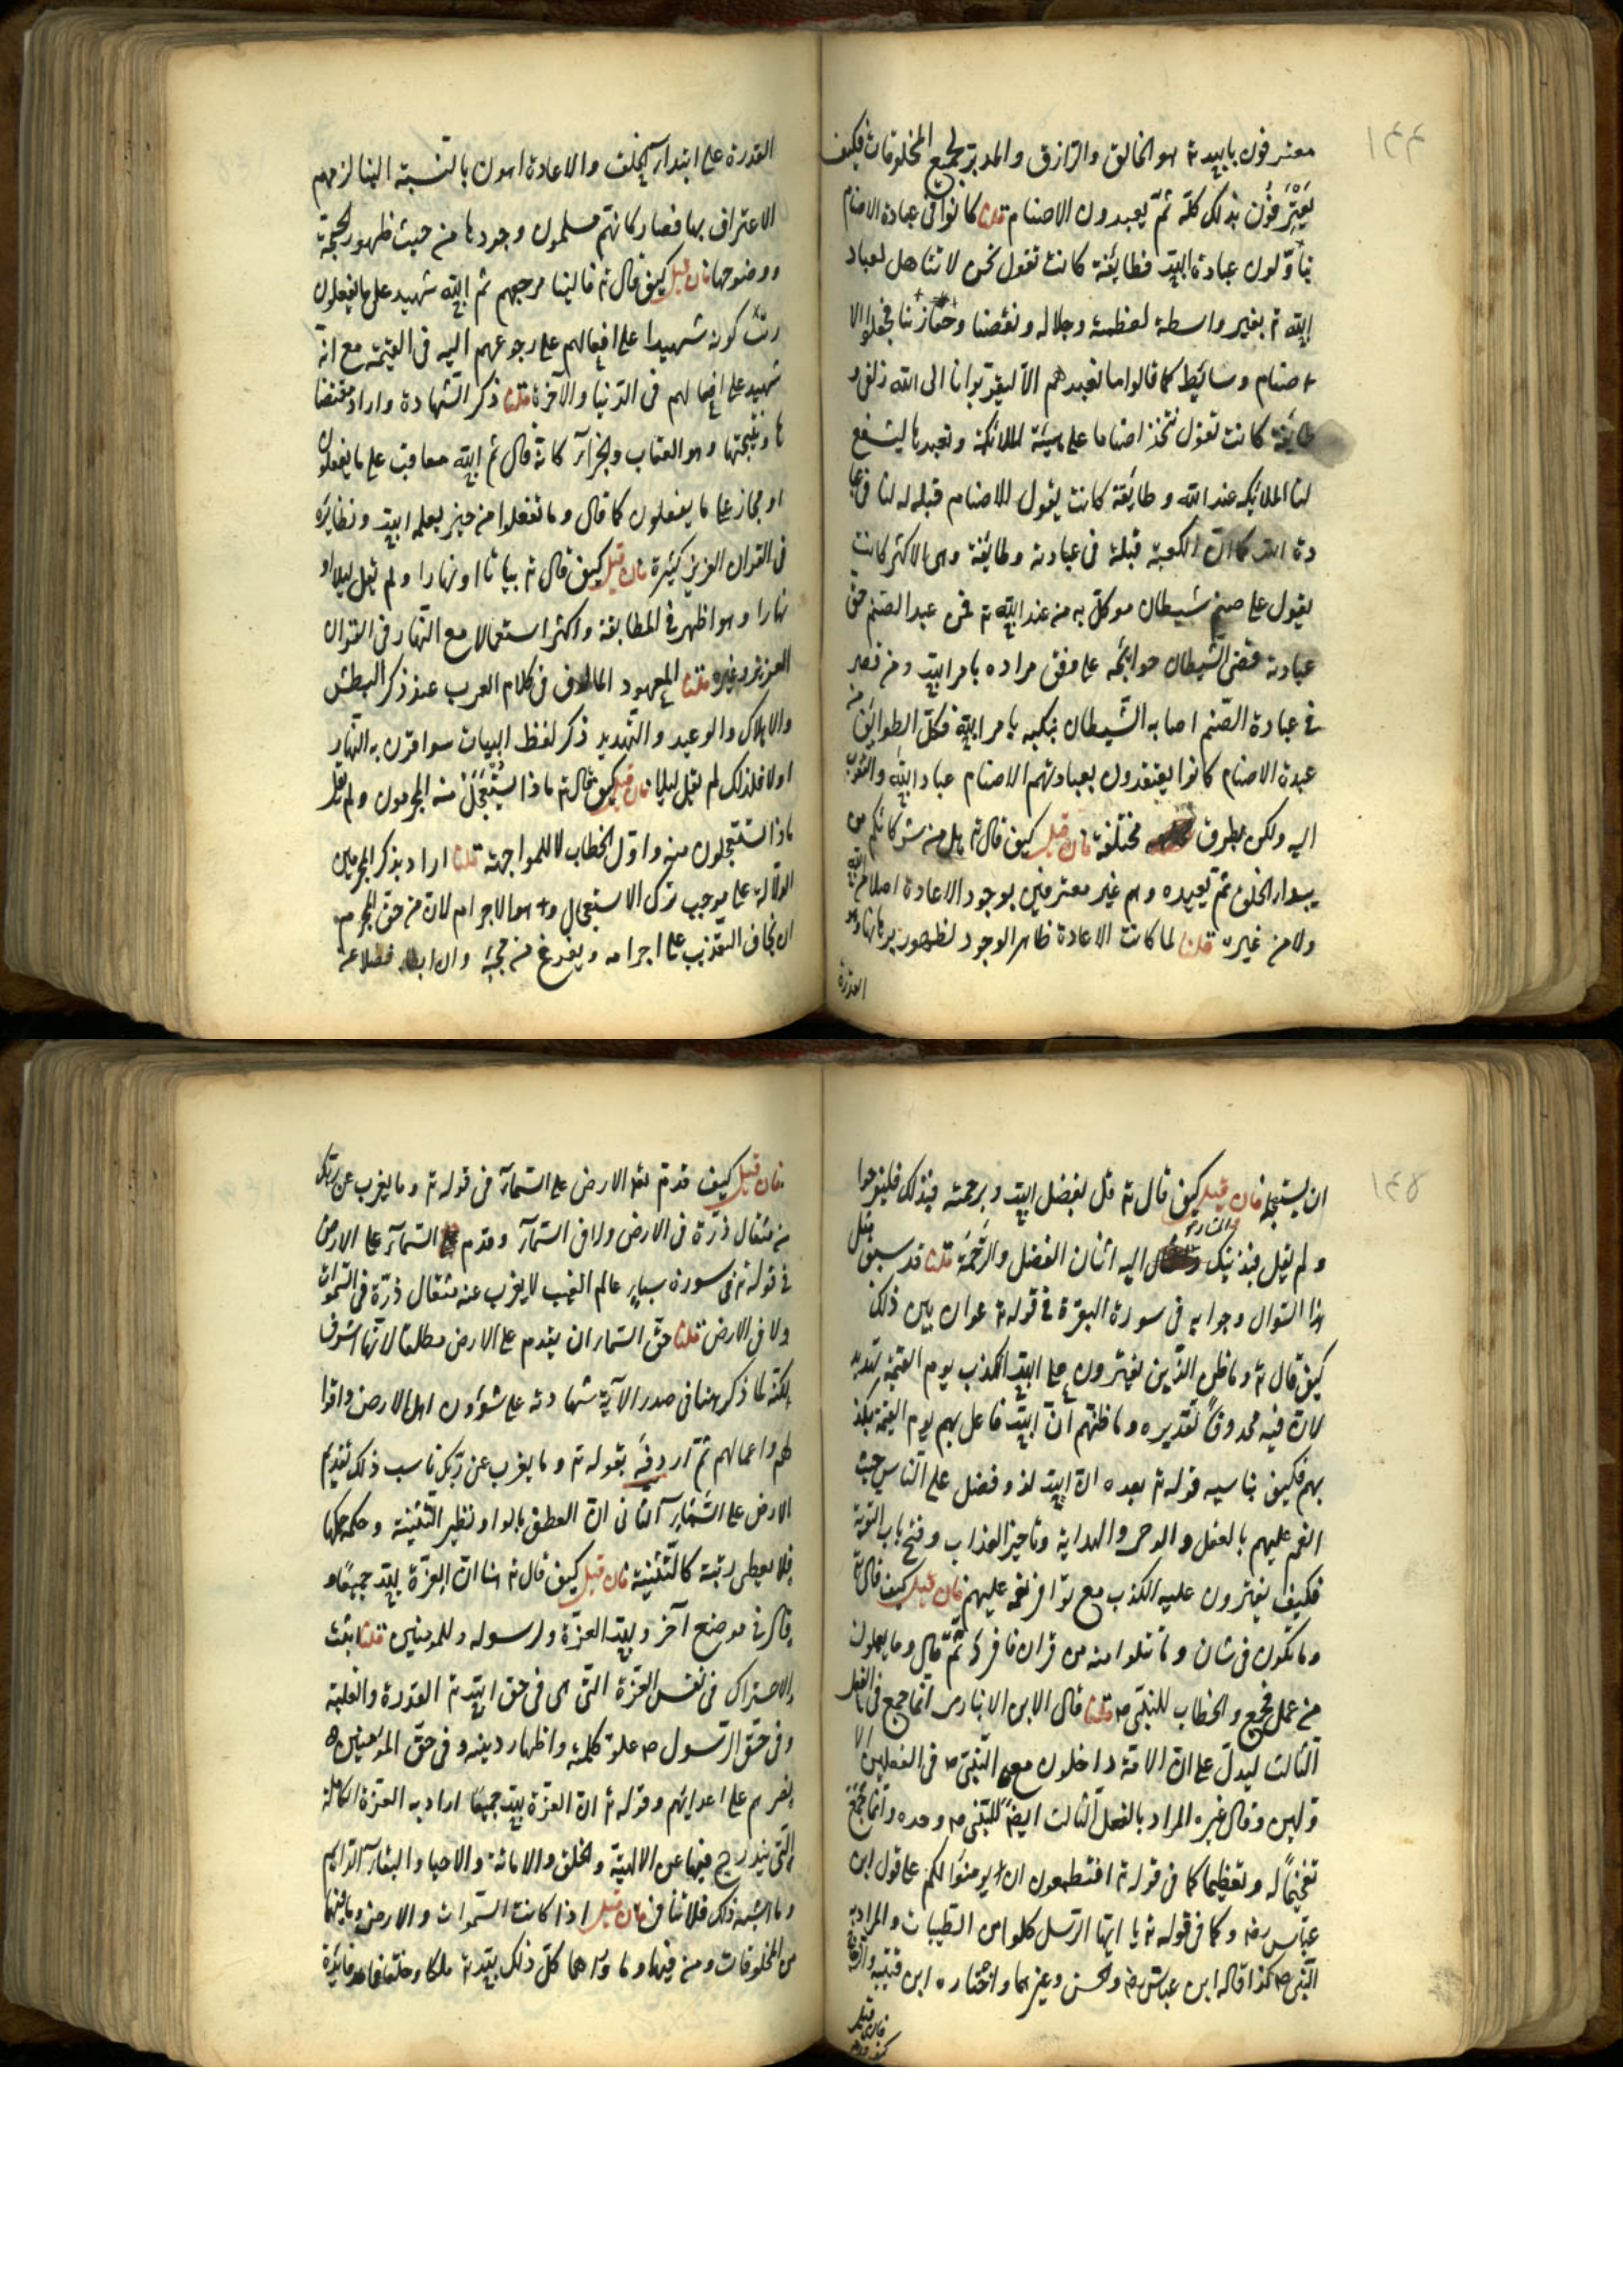 ١٤٤
معترفون بان الله تع هو الخالق والرازق والمدبر لجميع المخلوقات فكيف
يَعْتَرِفُون بذلك كلّه ثمّ يعبدون الاصنام قلنا كانوا فى عبادة الاصنام
يتأوّلون عبادة الله فطايفة كانت تقول نحن لا نتاهل لعباد
الله تع بغير واسطة لعظمته وجلاله ونقصنا وحقارتنا فجعلوا الا
صنام وسائط كما قالوا ما نعبدهم الا ليقربونا الى الله زلفى و
طايفة كانت تقول نتخذ اصناما على هيئة الملائكة ونعبدها ليشفع
لنا الملائكه عند الله وطايفة كانت يقول الاصنام قبله لنا فى عبا
دة الله كما ان الكعبة قبلة فى عبادته وطايفة وهى الاكثر كانت
يقول على صنم شيطان موكل به من عند الله تع فمن عبد الصنم حق
عبادته قضى الشيطان حوايجه على وفق مراده بامر الله ومن قصر
فى عبادة الصنم اصابه الشيطان بنكبه بامر الله فكل الطوايف من
عبدة الاصنام كانوا يعتقدون بعبادتهم الاصنام عبادة الله والتقرب
اليه ولكن بطرق مختلفة فان قيل كيف قال تع هل من شركائكم من
يبدؤا الخلق ثم يعيده وهم غير معترفين بوجود الاعادة اصلا من الله
ولا من غيره قلنا لما كانت الاعادة ظاهر الوجود لظهور برهانها وهو
القدرة
القدرة على ابتداء الخلق والاعادة اهون بالنسبة الينا لزمهم
الاعتراف بها فصار كانهم مسلمون وجودها من حيث ظهور الحجة
ووضوحها فان قيل كيف قال تع فالينا مرجعهم ثم الله شهيد على ما يفعلون
رتب كونه شهيدا على افعالهم على رجوعهم اليه فى القيمة مع انه
شهيد على افعالهم فى الدنيا والآخرة قلنا ذكر الشهادة واراد مقتضا
ها ونتيجتها وهو العقاب والجزاء كانه قال ثم الله معاقب على ما يفعلون
او مجاز على ما يفعلون كما قال وما تفعلوا من خير يعلمه الله ونظايره
فى القران العزيز كثيرة فان قيل كيف قال تع بياتا او نهارا ولم يقل ليلا او
نهارا وهو اظهر فى المطابقة واكثر استعمالا مع النهار فى القران
العزيز وغيره قلنا المعهود المالوف فى كلام العرب عند ذكر البطش
والاهلاك والوعيد والتهديد ذكر لفظ البيات سوا قرن به النهار
اولا فلذلك لم يقل ليلا فان قيل كيف قال تع ماذا يَسْتَعْجِلُ منه المجرمون ولم يقل
ماذا تستعجلون منه واوّل الخطاب للمواجهة قلنا اراد بذكر المجرمين
الدلالة على موجب ترك الاستعجال وهو الاجرام لان من حق المجرم
ان يخاف التعذيب على اجرامه ويفزع من مجيئه وان ابطا فضلا عن
١٤٥
ان يستعجله فان قيل كيف قال تع قل بفضل الله وبرحمته فبذلك فليفرحوا
ولم يقل فبذينك والمشار اليه اثنان الفضل والرّحمة قلنا قد سبق مثل
هذا السؤال وجوابه فى سورة البقرة فى قوله تع عوان بين ذلك
كيف قال تع وما ظن الذين يفترون على الله الكذب يوم القيمة تهديد
لان فيه محذوفا تقديره وما ظنهم ان الله فاعل بهم يوم القيمة بكذ
بهم فكيف يناسبه قوله تع بعده ان الله لذو فضل على الناس حيث
انعم عليهم بالعقل والوحى والهداية وتاخير العذاب وفتح باب التوبة
فكيف يفترون عليه الكذب مع توافر نعمه عليهم فان قيل كيف قال تع
وما تكون فى شان وما تتلوا منه من قران فافرد ثمّ قال وما يعملون
من عمل فجمع والخطاب للنبى ص قلنا قال الابن الانبارى انما جمع فى الفعل
الثالث ليدل على ان الامة داخلون مع النبى ص فى الفعلين الا
ولين وقال غيره المراد بالفعل الثالث ايضا النبى ص وحده وانما جمع
تفخيما له وتعظيما كما فى قوله تع افتطمعون ان يومنوا لكم على قول ابن
عباس رض وكما فى قوله تع يا ايها الرسل كلوا من الطيبات والمراد به
النبى ص كذا قاله ابن عباس رض والحسن وغيرهما واختاره ابن قتيبه والزجاج
فان قيل
كيف قدم
فان قيل كيف قدم تع الارض على السماء فى قوله تع وما يعزب عن ربك
من مثقال ذرّة فى الارض ولا فى السماء وقدم السماء على الارض
فى قوله تع فى سورة سبا عالم الغيب لا يعزب عنه مثقال ذرّة فى السموات
ولا فى الارض قلنا حق السماء ان يقدم على الارض مطلقا لانها اشرف
لكنه لما ذكر هنا فى صدر الآية شهادته على شؤون اهل الارض واقوا
لهم واعمالهم ثمّ اردفه بقوله تع وما يعزب عن ربك ناسب ذلك تقديم
الارض على السماء الثانى ان العطف بالواو نظير التثنية وحكمه حكمها
فلا يعطى رتبة كالتثنية فان قيل كيف قال تع هنا ان العزة لله جميعا و
قال فى موضع آخر ولله العزّة ولرسوله وللمومنين قلنا اثبت
الاشتراك فى نفس العزّة التى هى فى حق الله تع القدرة والغلبة
وفى حق الرسول ص علو كلمته واظهار دينه وفى حق المومنين
نصرهم على اعدائهم وقوله تع ان العزة لله جميعا اراد به العزة الكاملة
التى يندرج فيها عز الالهية والخلق والاماتة والاحيا والبقاء الدايم
وما اشبه ذلك فلا تنافى فان قيل اذا كانت السموات والارض وما بينهما
من المخلوقات ومن فيهما وما وراهما كل ذلك لله تع ملكا وخلقا فما فايدة